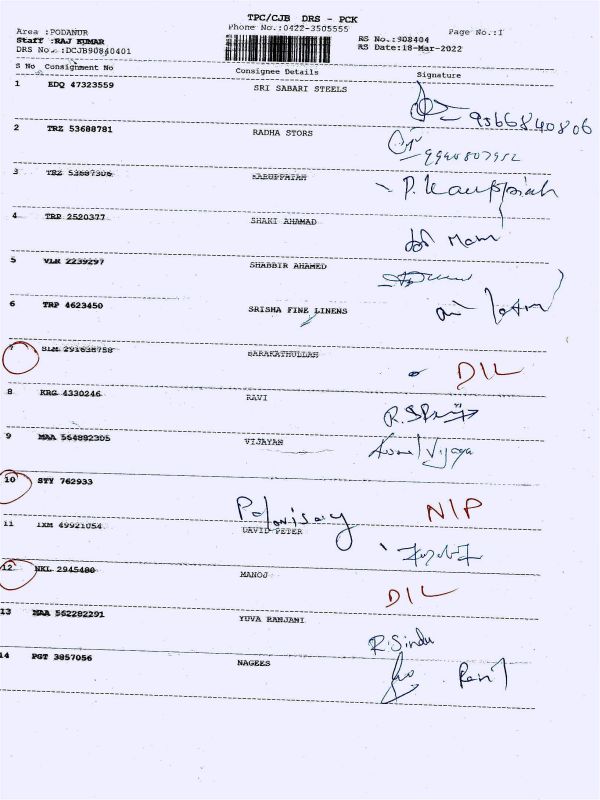 TPC/CJB DRS - PCK
Area :PODANUR Phone No.:0422-3505555 Page No.:1
Staff :RAJ KUMAR RS No.:908404
DRS No.:DCJB90840401 RS Date:18-Mar-2022
S No Consignment No Consignee Details Signature
1 EDQ 47323559 SRI SABARI STEELS
9566840806
2 TRZ 53688781 RADHA STORS
3 TRZ 53687306 KARUPPAIAH P. Karuppaiah
4 TRP 2520377 SHAKI AHAMAD
5 VLR 2239297 SHABBIR AHAMED
6 TRP 4623450 SRISHA FINE LINENS
7 SLM 291638758 BARAKATHULLAH DIL
8 KRG 4330246 RAVI
9 MAA 564882305 VIJAYAN
10 STY 762933 NIP
11 IXM 49921054 DAVID PETER
12 NKL 2945480 MANOJ DIL
13 MAA 562282291 YUVA RANJANI R. Sindu
14 PGT 3857056 NAGEES